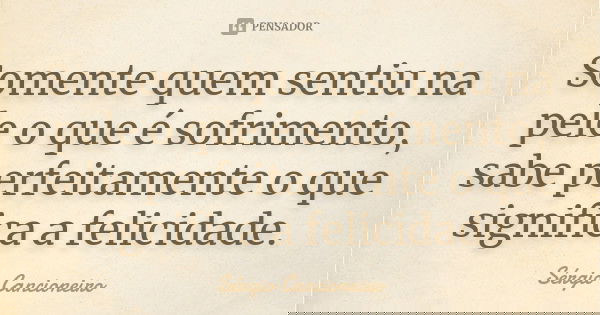 PENSADOR
Somente quem sentiu na
pele o que é sofrimento,
sabe perfeitamente o que
significa a felicidade.
Sérgio Cancioneiro